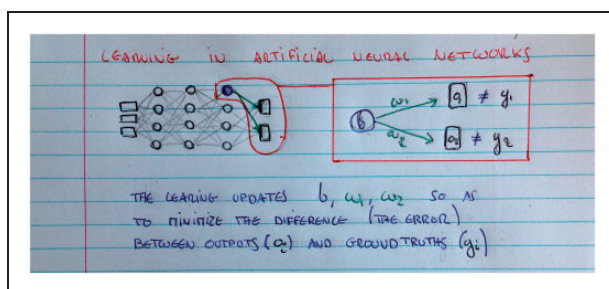 LEARNING IN ARTIFICIAL NEURAL NETWORKS
b
w1
w2
≠ g1
≠ g2
THE LEARING UPDATES b, w1, w2 SO AS
TO MINIMIZE THE DIFFERENCE (THE ERROR)
BETWEEN OUTPUTS (ai) AND GROUND TRUTHS (gi)